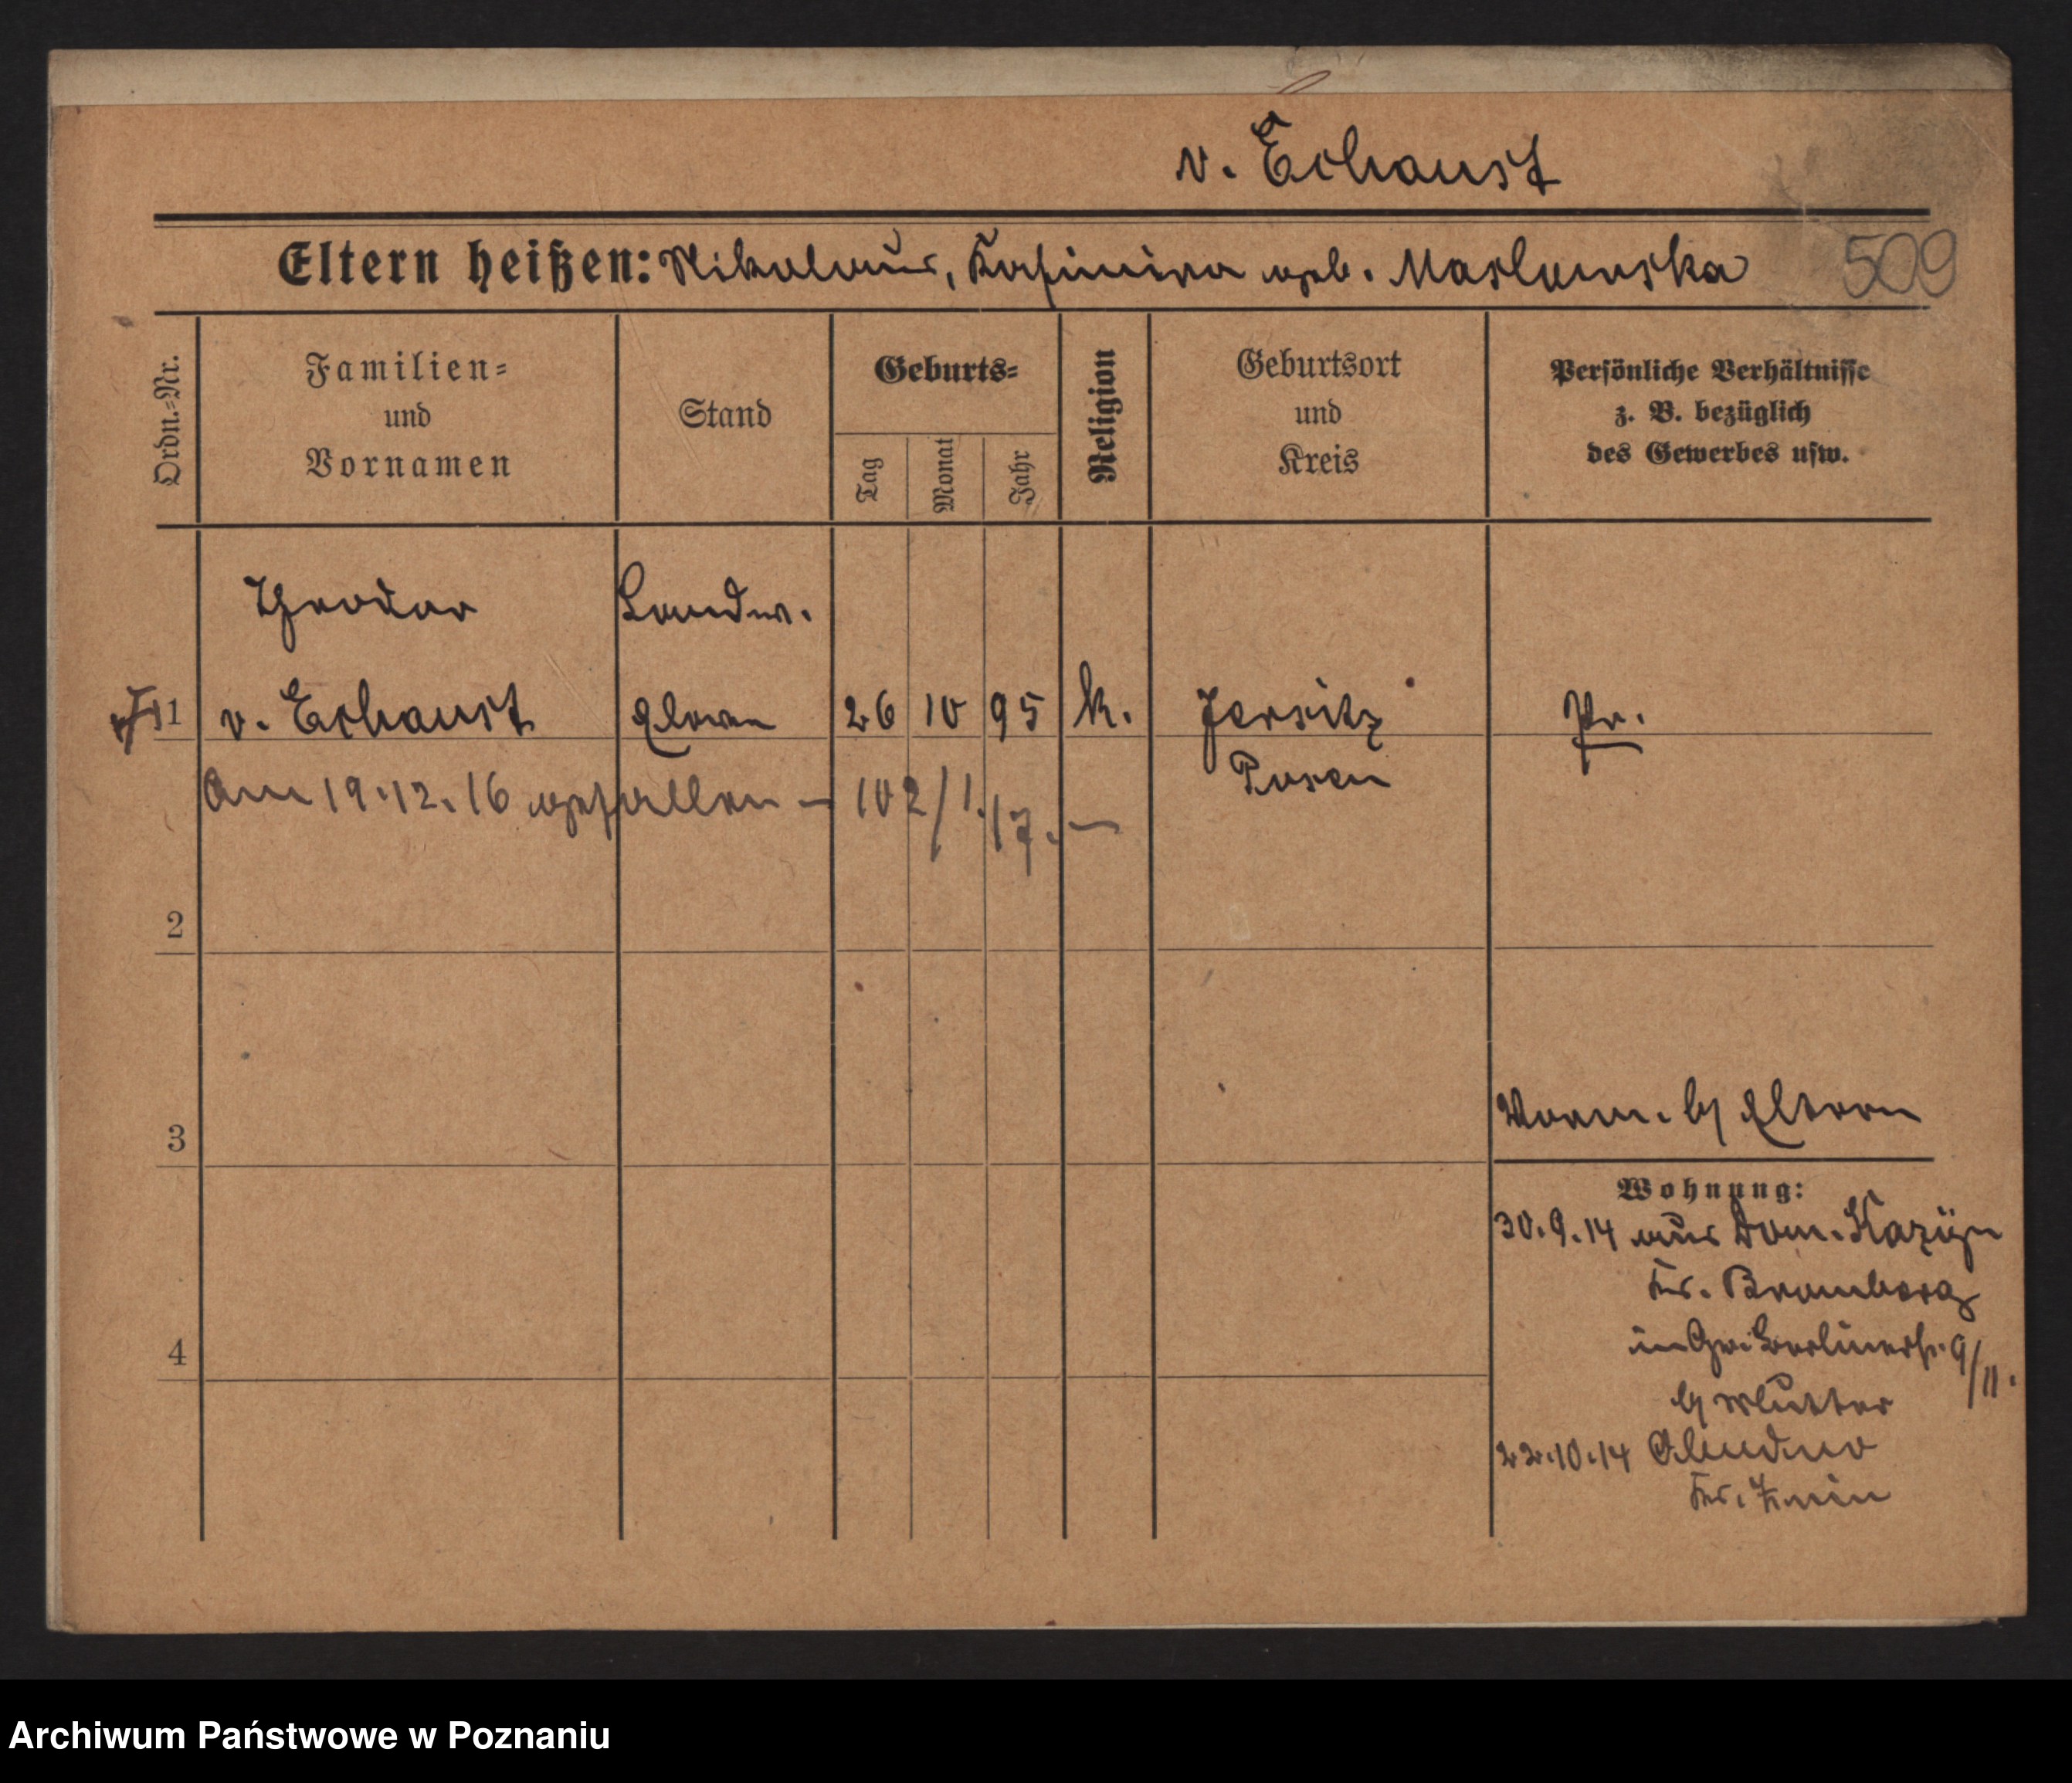 v. Echaust
Eltern heißen: Nikolaus, Kasimira geb. Maslowska 509
Ordn.=Nr.
Familien=
und
Vornamen
Stand
Geburts=
Tag
Monat
Jahr
Religion
Geburtsort
und
Kreis
Persönliche Verhältnisse
z. B. bezüglich
des Gewerbes usw.
Theodor Landw.
1 v. Echaust Eleve 26 10 95 k. Jersitz Pr.
Posen
Am 19.12.16 gefallen – 102/1.17. –
2
3
Vorm. b/ Eltern
Wohnung:
30.9.14 aus Dom.
Kr. Bromberg
in Gr. Berlinerstr. 9/11.
b/ Mutter
22.10.14
Kr. Znin
4
Archiwum Państwowe w Poznaniu